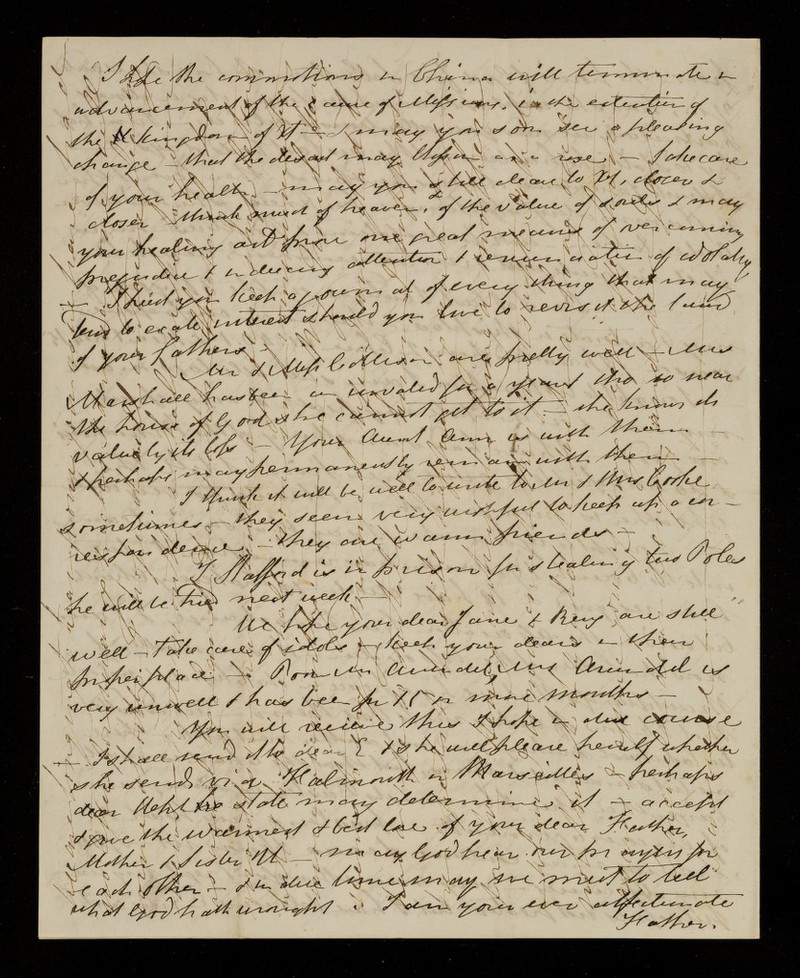 I hope the commotions in China will terminate in
advancement of the cause of Missions, in the extention of
the Kingdom of Xt — may you soon see a pleasing
change — that the desart may blossom as a rose — Take care
of your health — may you still cleave to Xt, closer &
closer think much of heaven, & of the value of souls & may
your healing art prove one great means of overcoming
prejudice & inducing attention & renunciation of idolatry
— I hied you keep a journal of every thing that may
tend to excite interest should you live to revisit the land
of your fathers
Mr & Miss Collison are pretty well — Mrs
Marshall has been an invalid for a year & tho so near
the house of God she cannot get to it — she knows its
value by its loss — Your Aunt Ann is with them —
& perhaps may permanently remain with them —
I think it will be well to write to Mr & Mrs Cooke
sometimes — they seem very wishful to keep up a cor-
respondence — they are warm friends —
T Stafford is in prison for stealing two Poles
he will be tried next week —
We hope your dear Jane & Benj are still
well — Take care of idols — keep your dears in their
proper place — Poor Mr Arundel, Mrs Arundel is
very unwell & has been for 15 or more months —
You will receive this I hope in due course
— I shall send it to dear E & she will please herself whether
she sends via Falmouth or Marseilles — perhaps
dear state may determine it — accept
& give the warmest & best love of your dear Father,
Mother & Sister M — may God hear our prayers for
each other — & in due time may we meet to tell
what God hath wrought. I am your ever affectionate
Father.